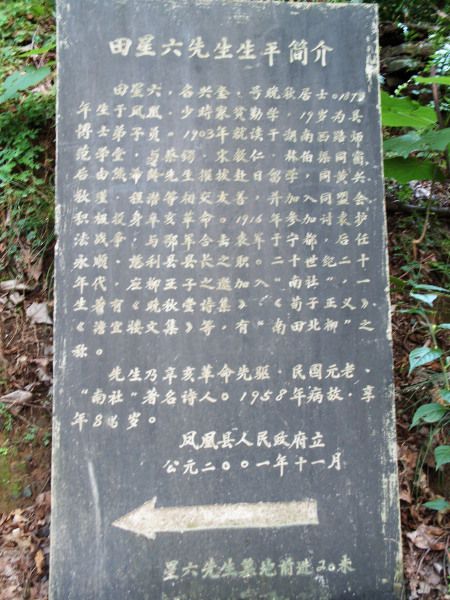 田星六先生生平简介
田星六，名兴奎，号晚秋居士。187
年生于凤凰。少时家贫勤学，19岁为县
博士弟子员。1903年就读于湖南西路师
范学堂，与蔡锷、宋教仁、林伯渠同窗，
后由熊希龄先生推拔赴日留学，同黄兴
程潜等初交友善，并加入同盟会
积极投身辛亥革命。1916年参加讨袁护
法战争，与邹军合击袁军于宁都，后任
永顺、慈利县县长之职。二十世纪二十
年代，应柳亚子之邀加入"南社"，一
生著有《晚秋堂诗集》、《荀子正义》、
《澹宜楼文集》等，有"南田北柳"之
称。
先生乃辛亥革命先驱、民国元老、
"南社"著名诗人。1958年病故，享
年8岁。
凤凰县人民政府立
公元二〇〇一年十一月
星六先生墓地前进20米